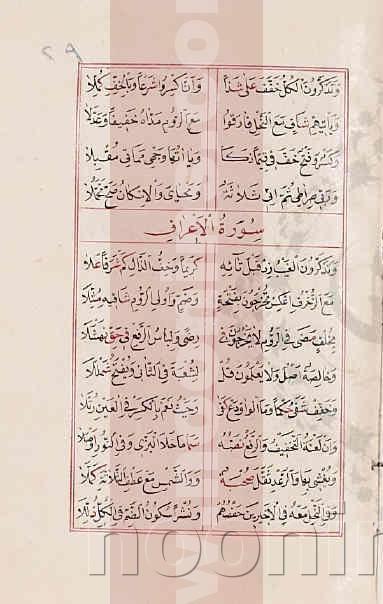 ٢٩
وتذكرون الكل خف على شذا وأن اكسروا شرعا وبالخف كملا
ويأتيهم شاف مع النحل فارقوا مع الروم مداه خفيفا وعدلا
وكسر وفتح خف في قيما ذكا وياءاتها وجهي مماتي مقبلا
وربي صراطي ثم إني ثلاثة ومحياي والإسكان صح تحملا
سورة الأعراف
وتذكرون الغيب زد قبل تائه كريما وخف الذال كم شرفا علا
مع الزخرف اعكس تخرجون بفتحة وضم وأولى الروم شافيه مثلا
بخلف مضى في الروم لا يخرجون في رضى ولباس الرفع في حق نهشلا
وخالصة أصل ولا يعلمون قل لشعبة في الثاني ويفتح شمللا
وخفف شفا حكما وما الواو دع كفى وحيث نعم بالكسر في العين رتلا
وأن لعنة التخفيف والرفع نصه سما ما خلا البزي وفي النور أوصلا
ويغشي بها والرعد ثقل صحبة ووالشمس مع عطف الثلاثة كملا
وفي النحل معه في الأخيرين حفصهم ونشرا سكون الضم في الكل ذللا
noonin